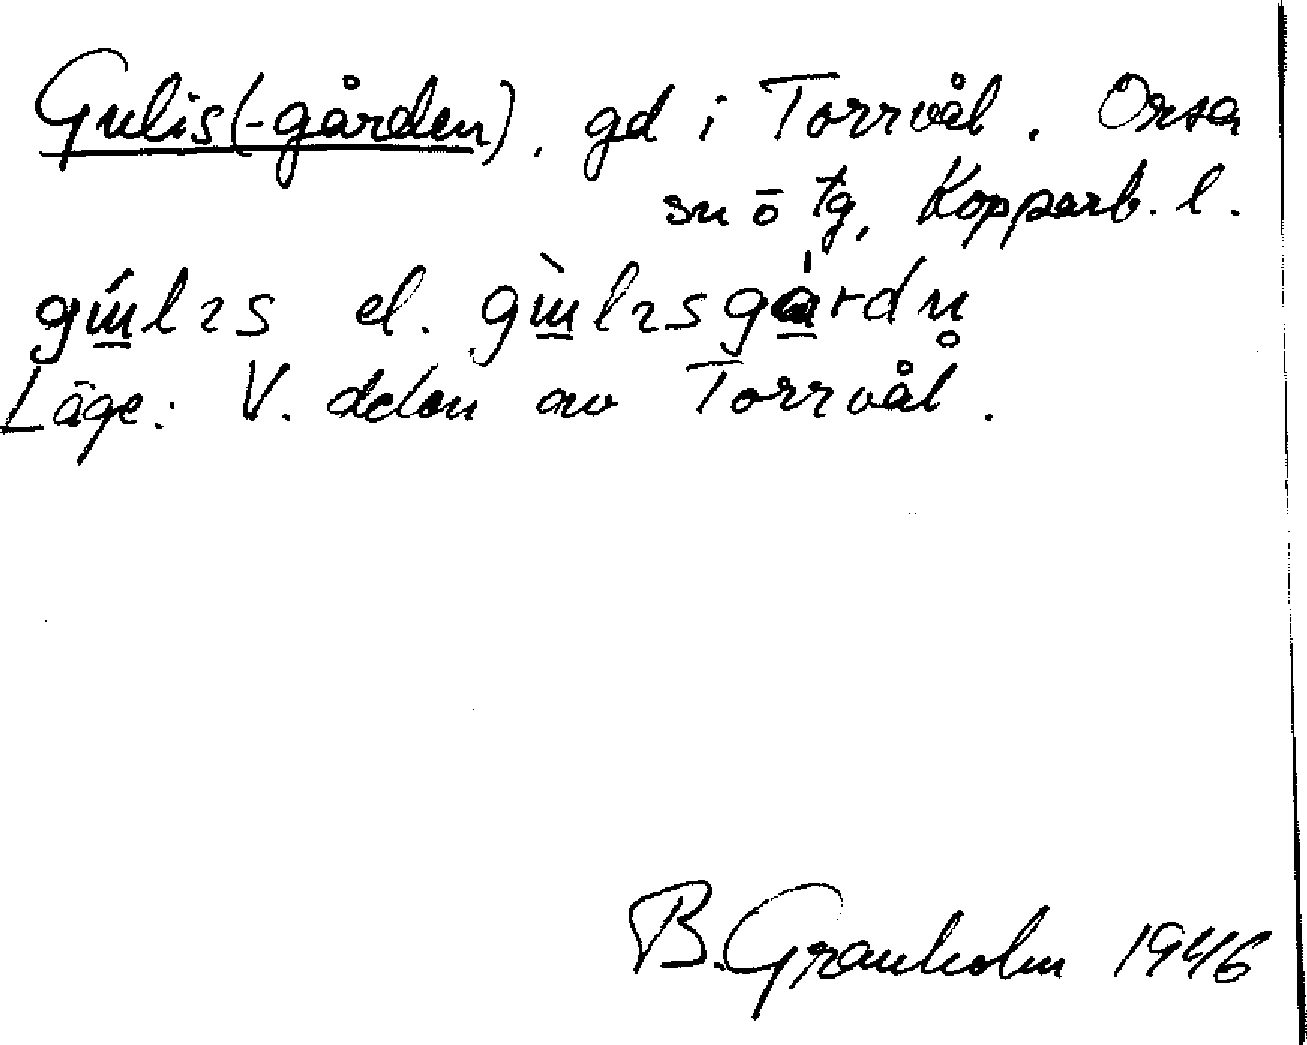 Gulis(-gården), gd i Torrvål. Orsa
sn ō tg, Kopparb. l.
gɯ́lɪs el. gɯ̀lɪsgàrdn̥
Läge: V. delen av Torrvål.
B. Granholm 1946